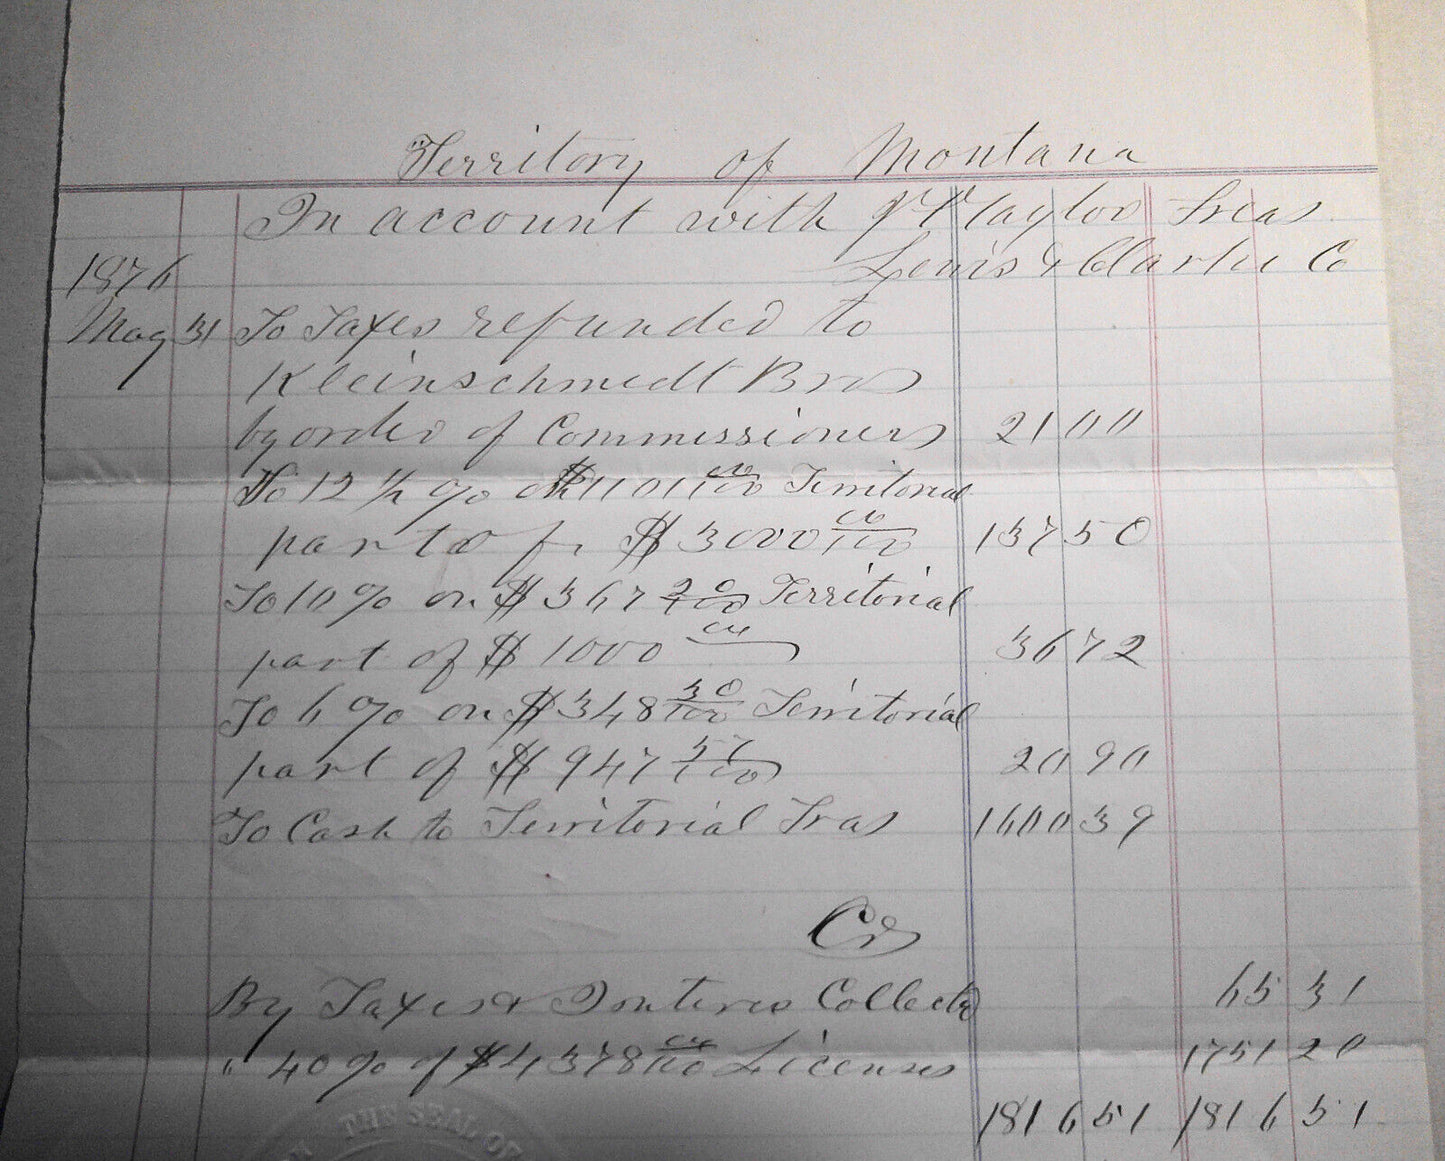 Territory of Montana
In account with J T Taylor Treas
Lewis & Clarke Co
1876
May 31 To Taxes refunded to
Kleinschmedt Bros
by order of Commissioners 21 00
To 12 1/2 % on $1101 00/100 Territorial
part of $3000 00/100 137 50
To 10 % on $367 20/100 Territorial
part of $1000 00 36 72
To 6 % on $348 30/100 Territorial
part of $947 57/100 20 90
To Cash to Territorial Tras 1600 39
Cr
By Taxes & Interes Collectd 65 31
" 40 % of $4378 00/100 Licenses 1751 20
1816 51 1816 51
THE SEAL OF